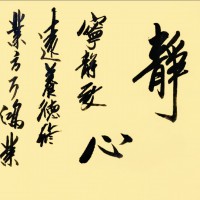 靜心
寧靜致
遠養德修
業方可鴻業